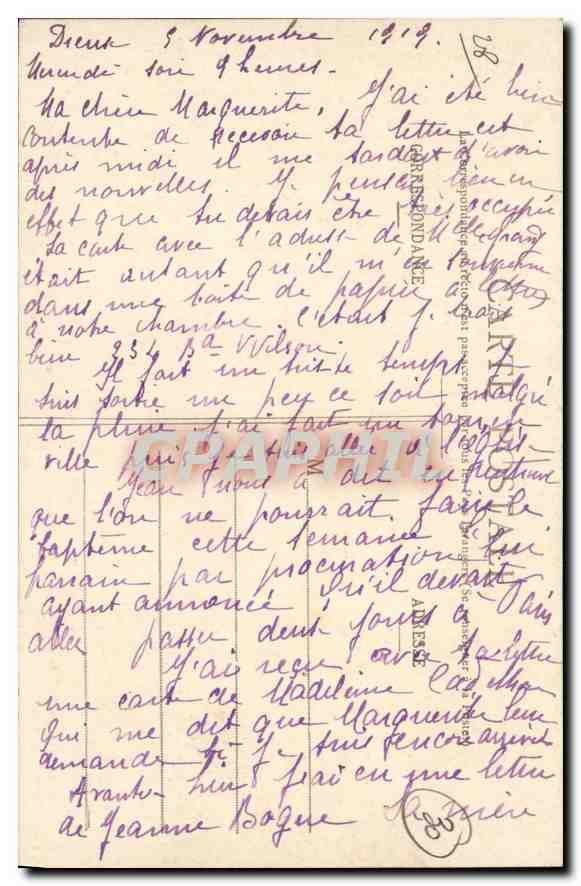 5 Novembre 1919.
28
soir 9 heures -
Ma chère Marguerite, J'ai été bien
contente de recevoir ta lettre cet
après midi il me tardait d'avoir
des nouvelles. Je pensais bien en
effet que tu devais être occupée
La carte avec l'adresse de
était autant qu'il m'en souvienne
dans une boite de papier à lettres
à notre chambre. C'était je crois
bien 234 Bd Wilson.
Il fait un triste temps. Je
suis sortie un peu ce soir malgré
la pluie j'ai fait un tour en
ville puis je suis allée à l'église
Jean nous a dit
que l'on ne pourrait faire le
baptême cette semaine
parrain par procuration lui
ayant annoncé qu'il devait
aller passer deux jours à Paris
J'ai reçu avec ta lettre
une carte de Madeleine
qui me dit que Marguerite
demande si je suis encore arrivée
Avant-hier j'ai eu une lettre
de Jeanne Bogue Ta mère
CARTE POSTALE
La Correspondance au recto n'est pas acceptée par tous les Pays étrangers (Se renseigner à la Poste)
CORRESPONDANCE
ADRESSE
M
CPAPHIL